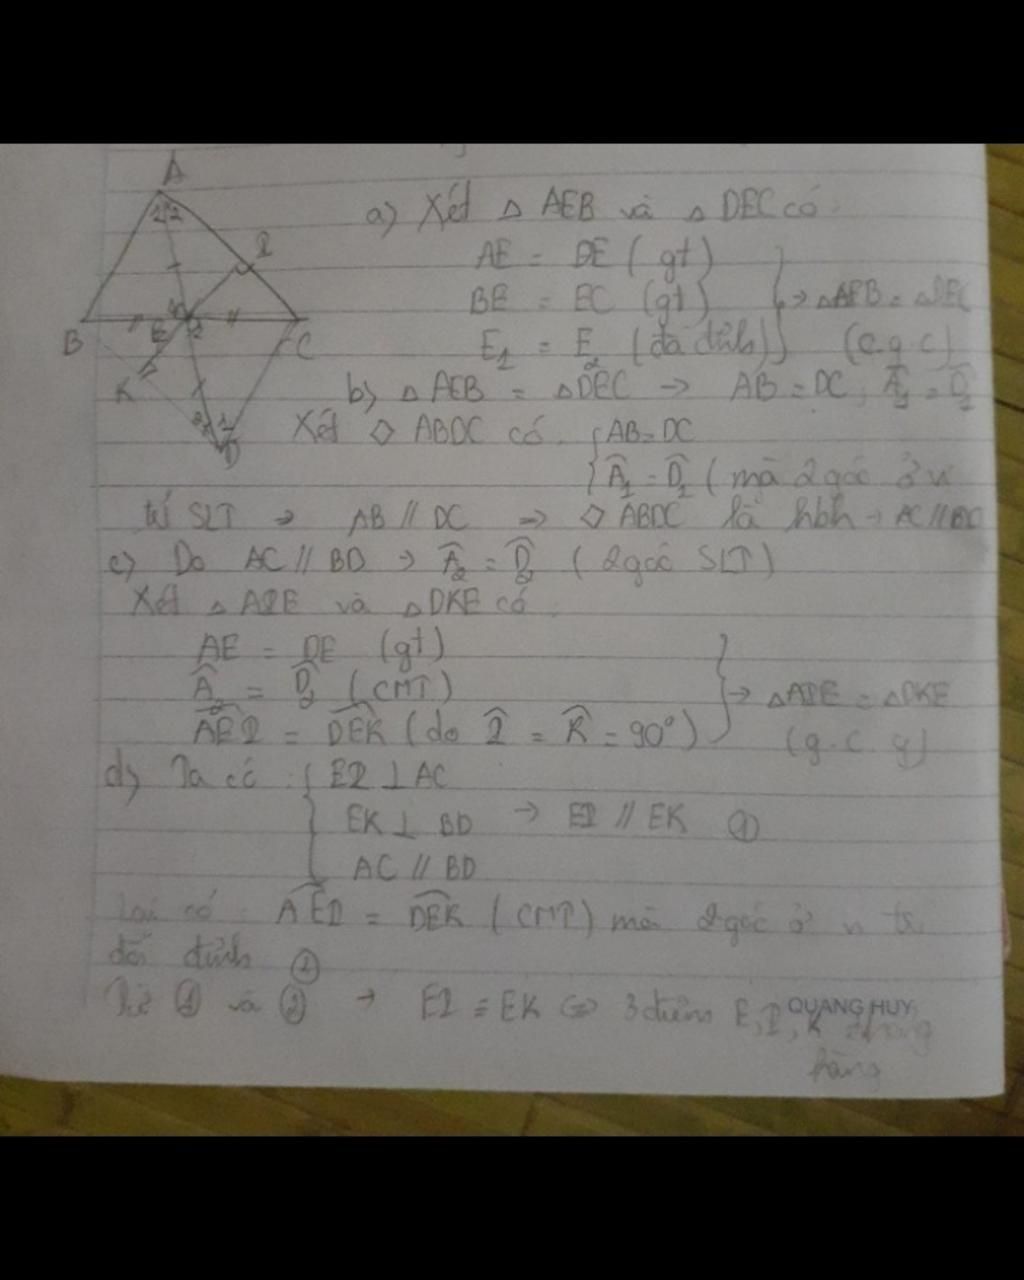 A
I
B
E
C
K
D
a) Xét △ AEB và △ DEC có
AE = DE (gt)
BE = EC (gt)
E1 = E2 (đối đỉnh)
→ △AEB = △DEC
(c.g.c)
b) △ AEB = △DEC → AB = DC, Â1 = D̂1
Xét ◇ ABDC có {AB=DC
{Â1 = D̂1 (mà 2 góc ở vị
trí SLT → AB // DC → ◇ ABDC là hbh →
c) Do AC // BD → Â2 = D̂2 (2 góc SLT)
Xét △ AIE và △DKE có
AE = DE (gt)
Â2 = D̂2 (CMT)
AEI = DEK (do Î = K̂ = 90°)
→ △AIE = △DKE
(g.c.g)
d) Ta có { EI ⊥ AC
EK ⊥ BD → EI // EK ①
AC // BD
Lại có AEI = DEK (CMT) mà 2 góc ở
đối đỉnh ②
Từ ① và ② → EI ≡ EK <=> 3 điểm E, I, K thẳng
hàng
QUANG HUY